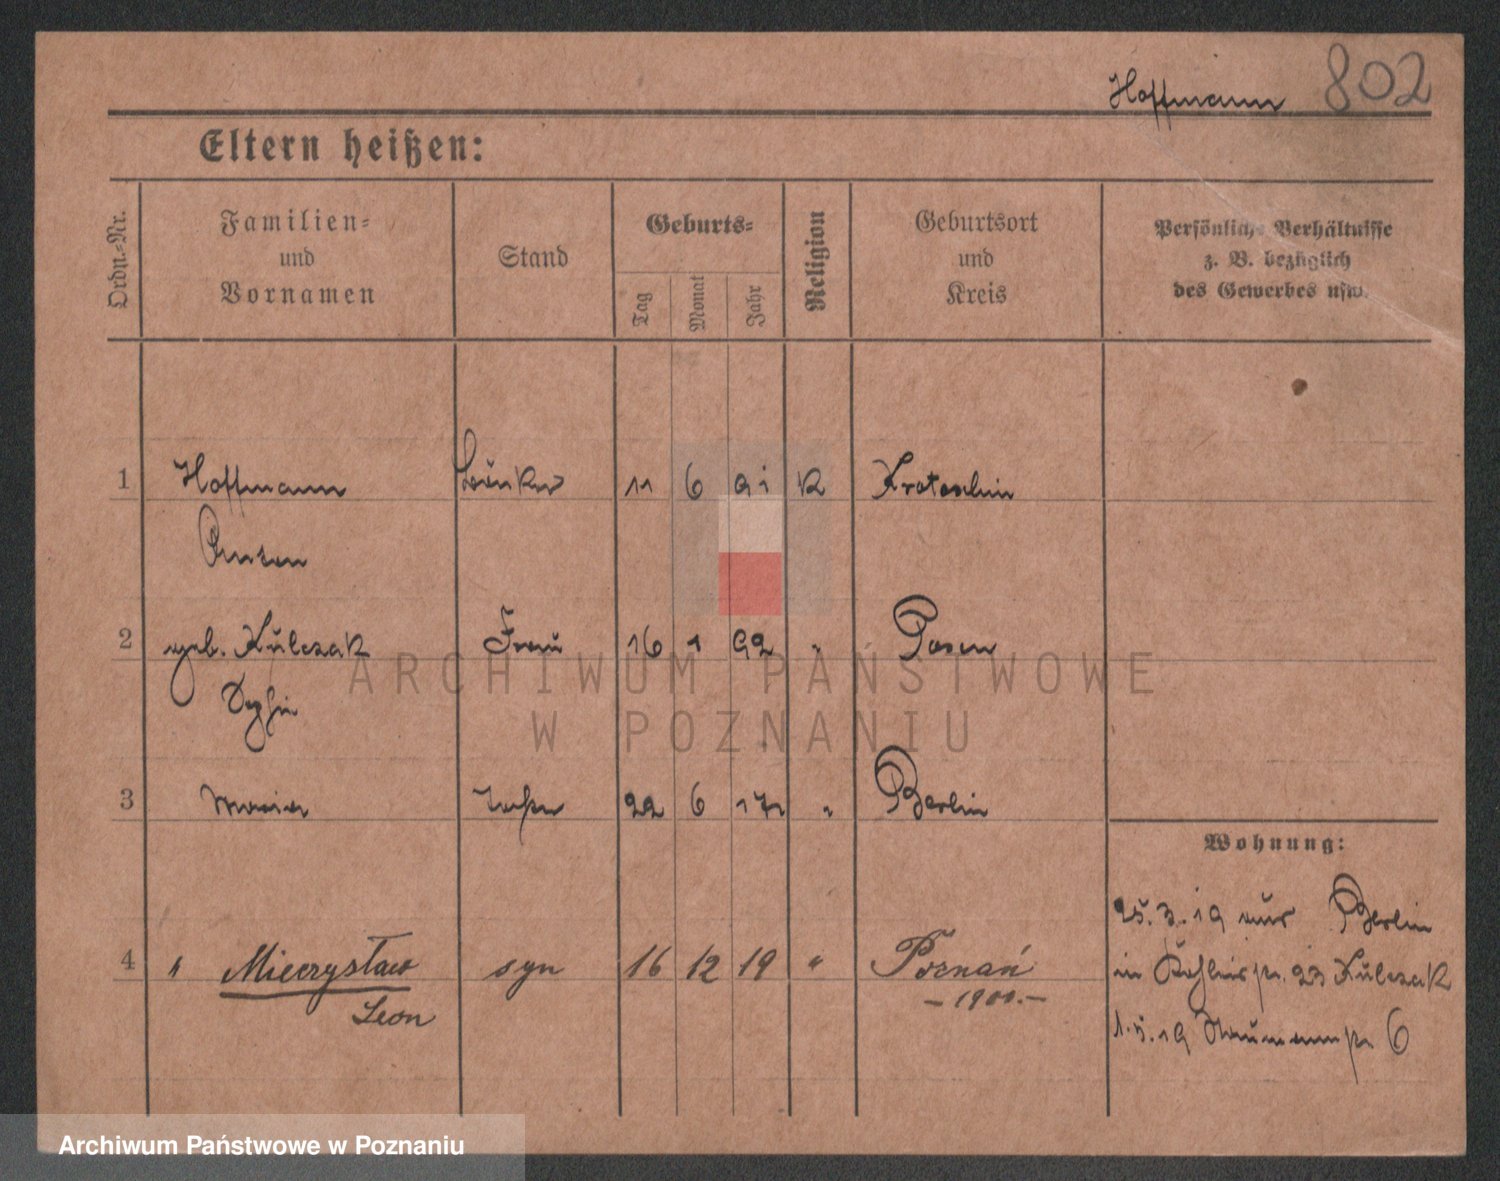 Hoffmann 802
Eltern heißen:
Ordn.-Nr.
Familien-
und
Vornamen
Stand
Geburts-
Tag
Monat
Jahr
Religion
Geburtsort
und
Kreis
Persönliche Verhältnisse
z. B. bezüglich
des Gewerbes usw.
1 Hoffmann 11 6 91 K Krotoschin
2 geb. Kulczak Frau 16 1 92 " Posen
Sophie
3 Maria 22 6 17 " Berlin
Wohnung:
25.3.19 aus Berlin
4 " Mieczysław syn 16 12 19 " Poznań
in 23 Kulczak
Leon
- 1901.-
1.5.19 Naumannstr 6
ARCHIWUM PAŃSTWOWE
W POZNANIU
Archiwum Państwowe w Poznaniu